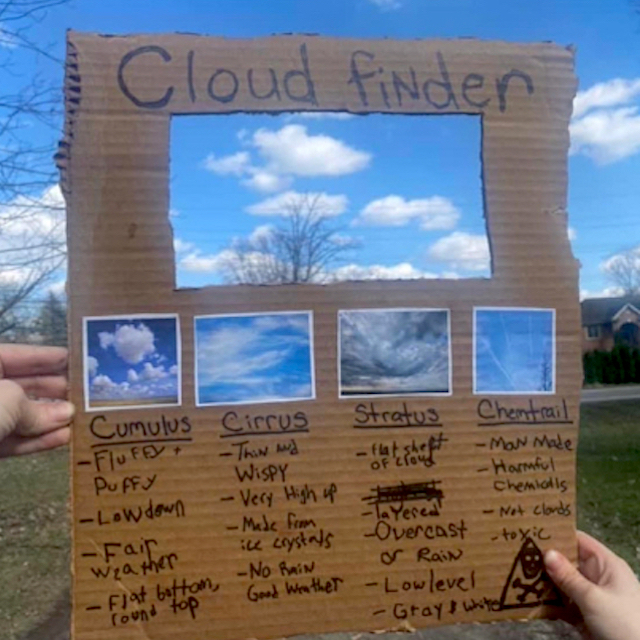 Cloud finder
Cumulus
- Fluffy +
Puffy
- Low down
- Fair
weather
- Flat bottom,
round top
Cirrus
- Thin and
Wispy
- Very High up
- Made from
ice crystals
- No Rain
Good Weather
Stratus
- flat sheet
of cloud
layered
- Overcast
or Rain
- Low level
- Gray & white
Chemtrail
- Man Made
- Harmful
Chemicals
- Not clouds
- toxic